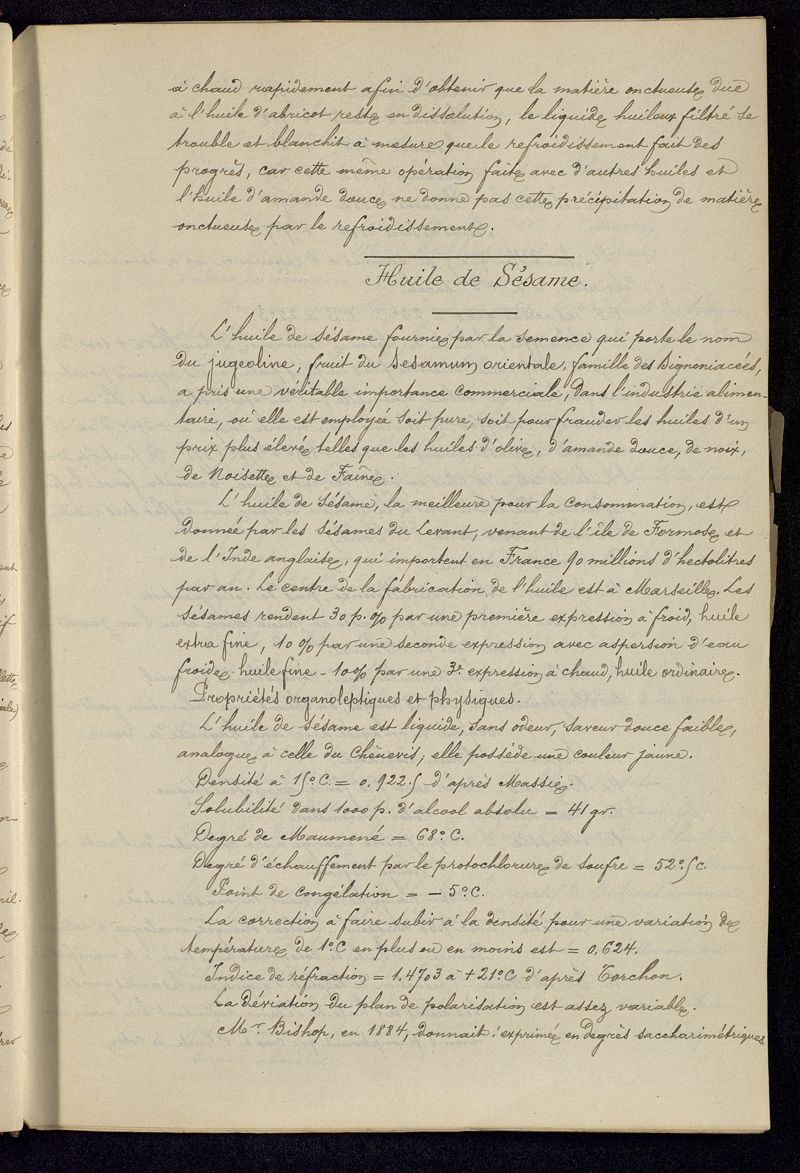 à chaud rapidement afin d'obtenir que la matière onctueuse due
à l'huile d'abricot reste en dissolution, le liquide huileux filtré se
trouble et blanchit à mesure que le refroidissement fait des
progrès, car cette même opération faite avec d'autres huiles et
l'huile d'amande douce ne donne pas cette précipitation de matière
onctueuse par le refroidissement.
Huile de Sésame.
L'huile de sésame fournie par la semence qui porte le nom
du jugeoline, fruit du Sesamum orientale, famille des Bignoniacées,
a pris une véritable importance commerciale, dans l'industrie alimen-
taire, où elle est employée soit pure, soit pour frauder les huiles d'un
prix plus élevé telles que les huiles d'olive, d'amande douce, de noix,
de Noisette et de Faîne.
L'huile de sésame, la meilleure pour la consommation, est
donnée par les sésames du Levant, venant de l'île de Formose et
de l'Inde anglaise, qui importent en France 90 millions d'hectolitres
par an. Le centre de la fabrication de l'huile est à Marseille. Les
sésames rendent 30 p. % par une première expression à froid, huile
extra fine, 10 % par une seconde expression avec aspersion d'eau
froide - huile fine - 10 % par une 3e expression à chaud, huile ordinaire.
Propriétés organoleptiques et physiques.
L'huile de sésame est liquide, sans odeur, saveur douce faible,
analogue à celle du Chènevis; elle possède une couleur jaune.
Densité à 15° C. = 0,9225 d'après Massie.
Solubilité dans 1000 p. d'alcool absolu = 41 gr.
Degré de Maumené = 68° C.
Degré d'échauffement par le protochlorure de soufre = 52°,5 C.
Point de congélation = - 5° C.
La correction à faire subir à la densité pour une variation de
température de 1° C en plus ou en moins est = 0,624.
Indice de réfraction = 1.4703 à + 21° C d'après Torchon.
La déviation du plan de polarisation est assez variable.
Mr Bishop, en 1884, donnait : exprimée en degrés saccharimétriques.